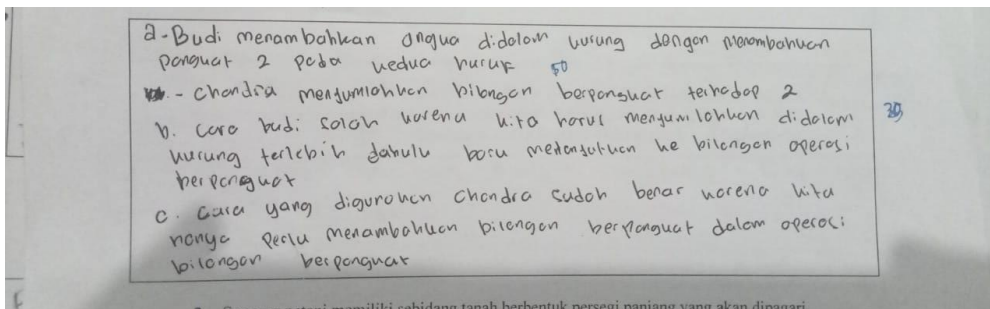 a - Budi menambahkan angka didalam kurung dengan menambahkan
pangkat 2 pada kedua huruf 50
- Chandra menjumlahkan bilangan berpangkat terhadap 2
b. cara budi salah karena kita harus menjumlahkan didalam 30
kurung terlebih dahulu baru melanjutkan ke bilangan operasi
berpangkat
c. cara yang digunakan Chandra sudah benar karena kita
hanya perlu menambahkan bilangan berpangkat dalam operasi
bilangan berpangkat
memiliki sebidang tanah berbentuk persegi panjang yang akan dipagari